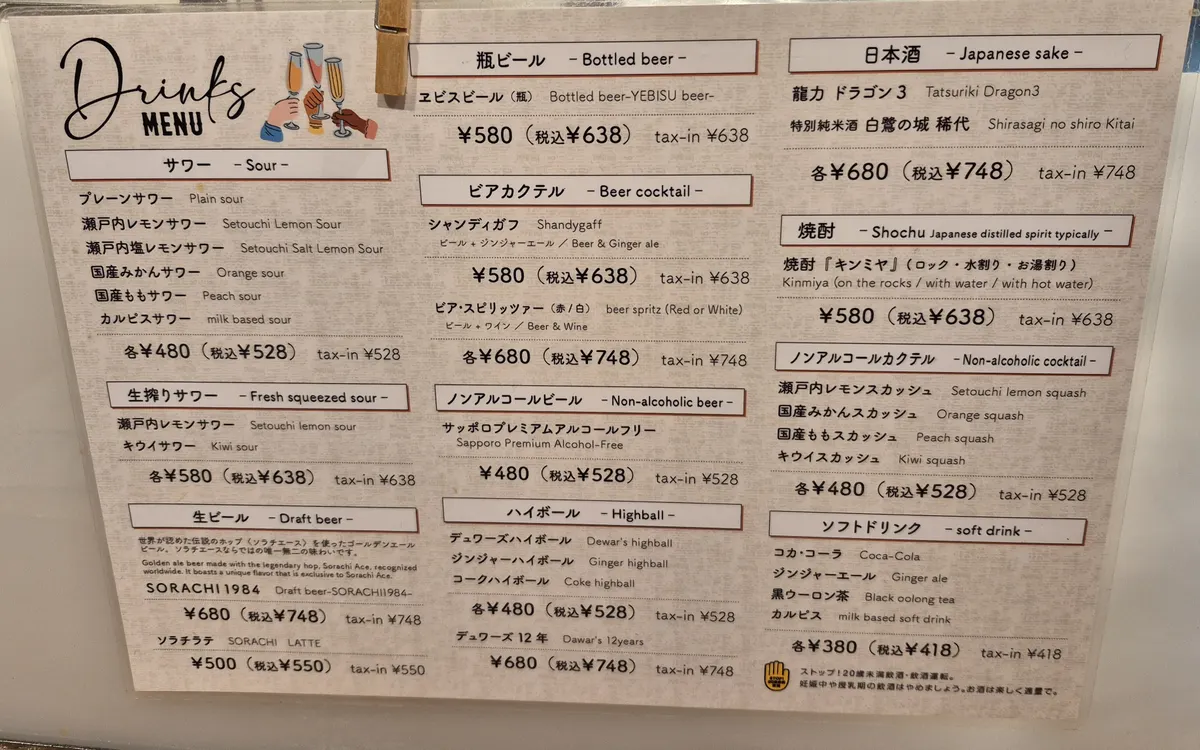 Drinks
MENU
サワー －Sour－
プレーンサワー Plain sour
瀬戸内レモンサワー Setouchi Lemon Sour
瀬戸内塩レモンサワー Setouchi Salt Lemon Sour
国産みかんサワー Orange sour
国産ももサワー Peach sour
カルピスサワー milk based sour
各¥480（税込¥528） tax-in ¥528
生搾りサワー －Fresh squeezed sour－
瀬戸内レモンサワー Setouchi lemon sour
キウイサワー Kiwi sour
各¥580（税込¥638） tax-in ¥638
生ビール －Draft beer－
世界が認めた伝説のホップ（ソラチエース）を使ったゴールデンエール
ビール。ソラチエースならではの唯一無二の味わいです。
Golden ale beer made with the legendary hop, Sorachi Ace, recognized
worldwide. It boasts a unique flavor that is exclusive to Sorachi Ace.
SORACHI 1984 Draft beer-SORACHI1984-
¥680（税込¥748） tax-in ¥748
ソラチラテ SORACHI LATTE
¥500（税込¥550） tax-in ¥550
瓶ビール －Bottled beer－
ヱビスビール（瓶） Bottled beer-YEBISU beer-
¥580（税込¥638） tax-in ¥638
ビアカクテル －Beer cocktail－
シャンディガフ Shandygaff
ビール + ジンジャーエール ／ Beer & Ginger ale
¥580（税込¥638） tax-in ¥638
ビア・スピリッツァー（赤 / 白） beer spritz (Red or White)
ビール + ワイン ／ Beer & Wine
各¥680（税込¥748） tax-in ¥748
ノンアルコールビール －Non-alcoholic beer－
サッポロプレミアムアルコールフリー
Sapporo Premium Alcohol-Free
¥480（税込¥528） tax-in ¥528
ハイボール －Highball－
デュワーズハイボール Dewar's highball
ジンジャーハイボール Ginger highball
コークハイボール Coke highball
各¥480（税込¥528） tax-in ¥528
デュワーズ 12 年 Dawar's 12years
¥680（税込¥748） tax-in ¥748
日本酒 －Japanese sake－
龍力 ドラゴン 3 Tatsuriki Dragon3
特別純米酒 白鷺の城 稀代 Shirasagi no shiro Kitai
各¥680（税込¥748） tax-in ¥748
焼酎 －Shochu Japanese distilled spirit typically－
焼酎『キンミヤ』（ロック・水割り・お湯割り）
Kinmiya (on the rocks / with water / with hot water)
¥580（税込¥638） tax-in ¥638
ノンアルコールカクテル －Non-alcoholic cocktail－
瀬戸内レモンスカッシュ Setouchi lemon squash
国産みかんスカッシュ Orange squash
国産ももスカッシュ Peach squash
キウイスカッシュ Kiwi squash
各¥480（税込¥528） tax-in ¥528
ソフトドリンク －soft drink－
コカ・コーラ Coca-Cola
ジンジャーエール Ginger ale
黒ウーロン茶 Black oolong tea
カルピス milk based soft drink
各¥380（税込¥418） tax-in ¥418
ストップ！20歳未満飲酒・飲酒運転。
妊娠中や授乳期の飲酒はやめましょう。お酒は楽しく適量で。